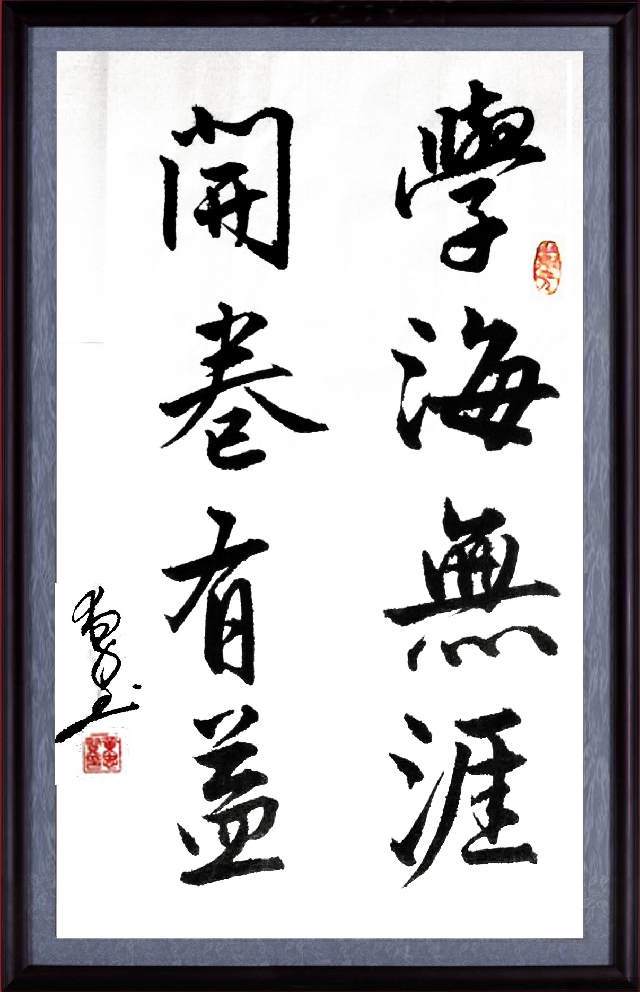 學海無涯
開卷有益